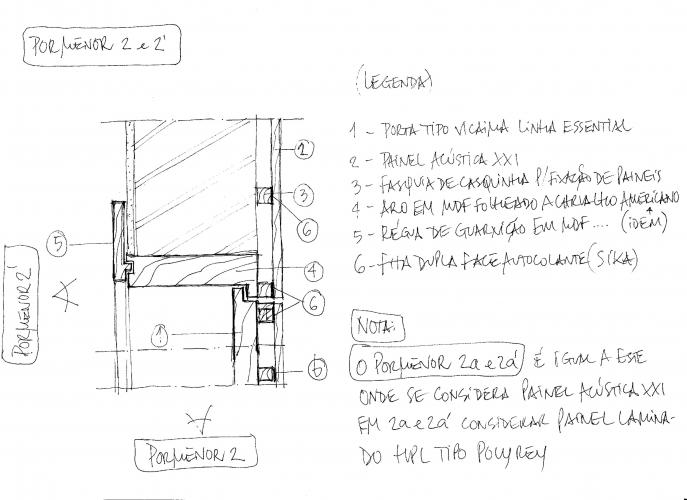 PORMENOR 2 e 2'
(LEGENDA)
1 - PORTA TIPO VICAIMA LINHA ESSENTIAL
2 - PAINEL ACÚSTICA XXI
3 - FASQUIA DE CASQUINHA P/ FIXAÇÃO DE PAINEIS
4 - ARO EM MDF FOLHEADO A CARVALHO AMERICANO
5 - REGUA DE GUARNIÇÃO EM MDF .... (IDEM)
6 - FITA DUPLA FACE AUTOCOLANTE (SIKA)
2
3
6
5
4
6
1
6
PORMENOR 2'
PORMENOR 2
NOTA:
O PORMENOR 2a e 2a' É IGUAL A ESTE
ONDE SE CONSIDERA PAINEL ACÚSTICA XXI
EM 2a e 2a' CONSIDERAR PAINEL LAMINA-
DO HPL TIPO POLYREY